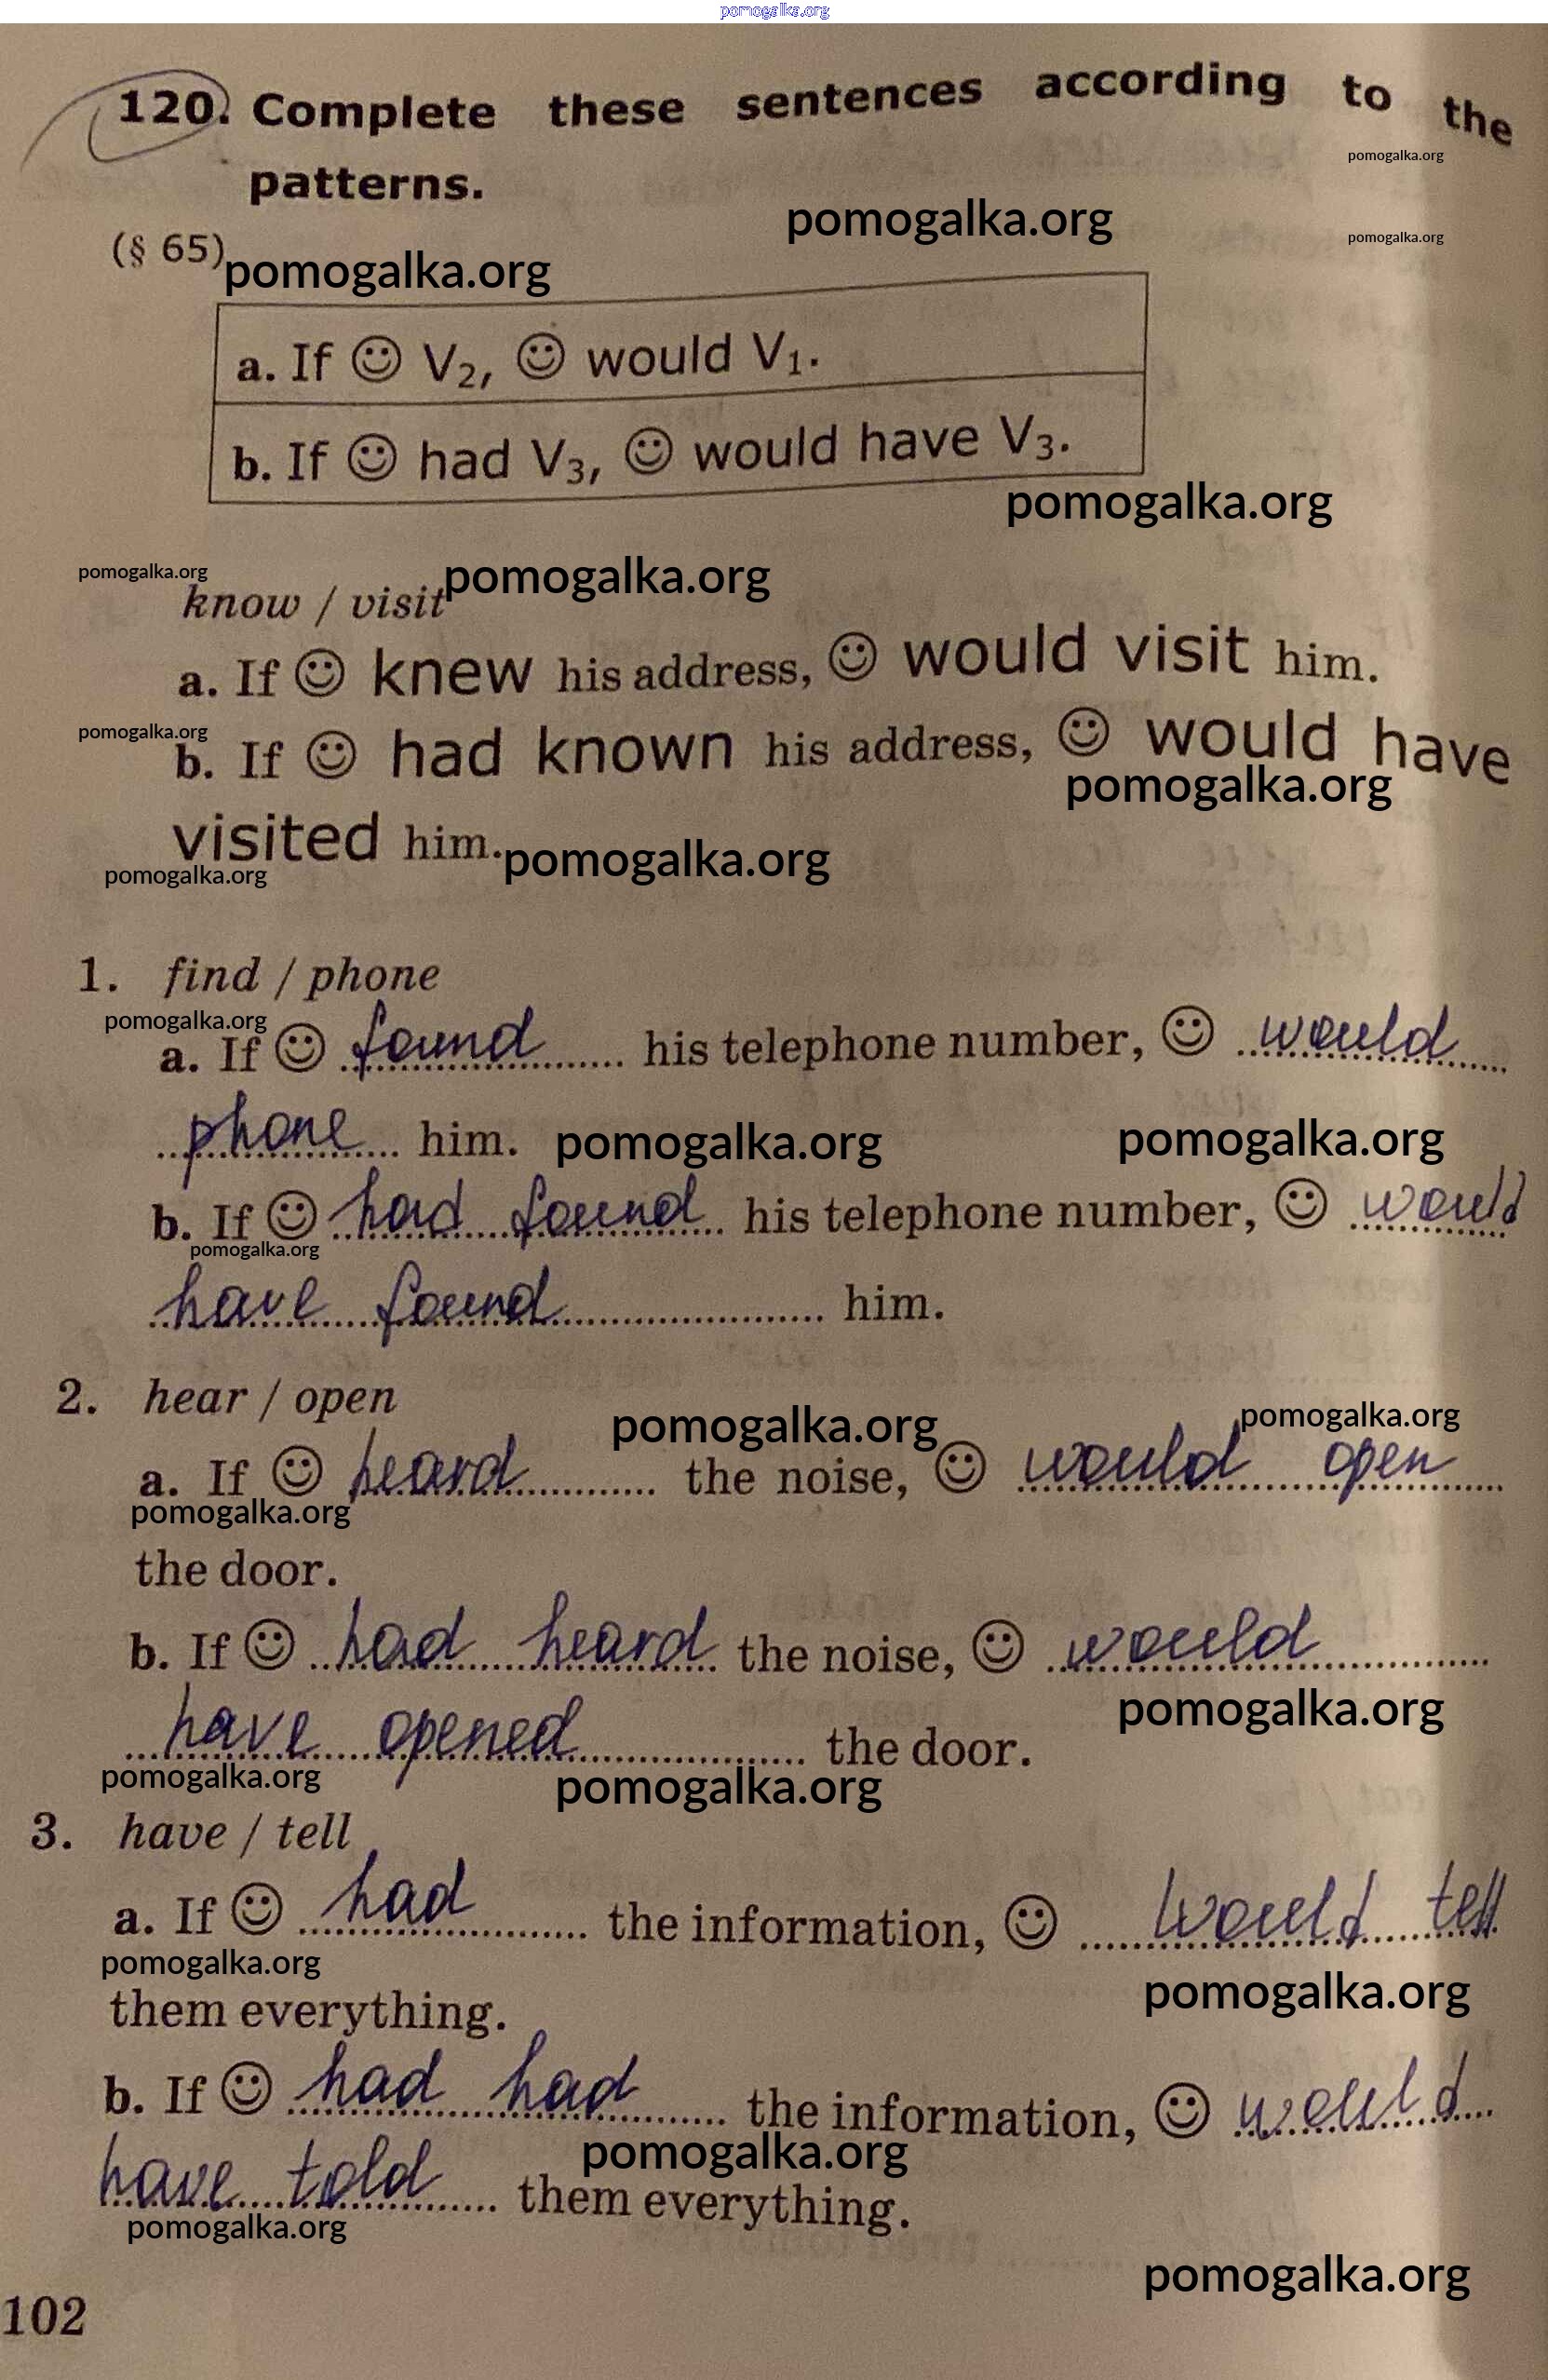 pomogalka.org
120. Complete these sentences according to the
pomogalka.org
patterns.
pomogalka.org
pomogalka.org
(§ 65)
pomogalka.org
a. If ☺ V₂, ☺ would V₁.
b. If ☺ had V₃, ☺ would have V₃.
pomogalka.org
pomogalka.org
pomogalka.org
know / visit
a. If ☺ knew his address, ☺ would visit him.
pomogalka.org
b. If ☺ had known his address, ☺ would have
pomogalka.org
visited him.
pomogalka.org
pomogalka.org
1. find / phone
pomogalka.org
a. If ☺ found his telephone number, ☺ would
phone him.
pomogalka.org
pomogalka.org
b. If ☺ had found his telephone number, ☺ would
pomogalka.org
have found him.
2. hear / open
pomogalka.org
pomogalka.org
a. If ☺ heard the noise, ☺ would open
pomogalka.org
the door.
b. If ☺ had heard the noise, ☺ would
pomogalka.org
have opened the door.
pomogalka.org
pomogalka.org
3. have / tell
a. If ☺ had the information, ☺ would tell
pomogalka.org
pomogalka.org
them everything.
b. If ☺ had had the information, ☺ would
pomogalka.org
have told them everything.
pomogalka.org
pomogalka.org
102